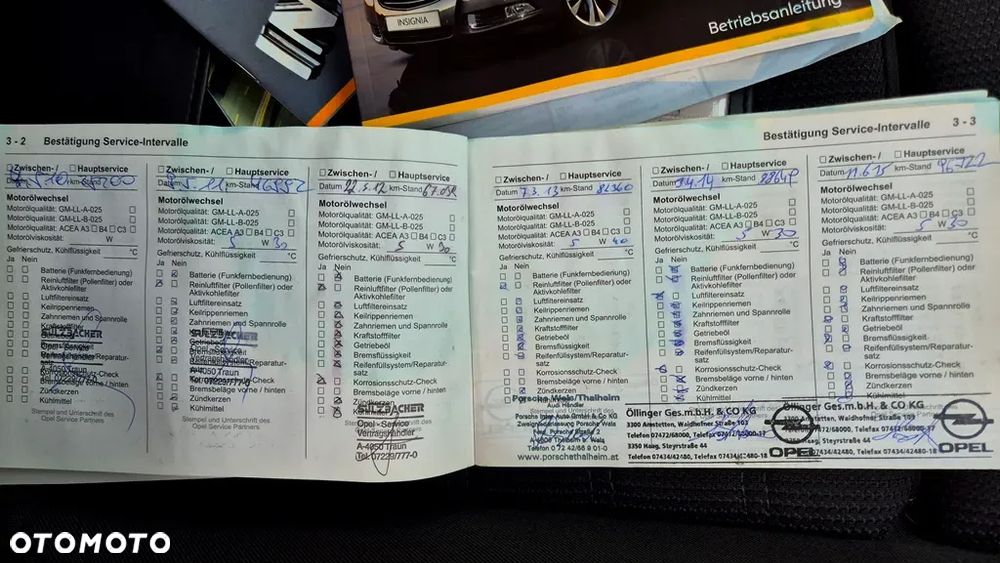 INSIGNIA
Betriebsanleitung
3 - 2 Bestätigung Service-Intervalle
Zwischen- / Hauptservice
km-Stand
Motorölwechsel
Motorölqualität: GM-LL-A-025
Motorölqualität: GM-LL-B-025
Motorölqualität: ACEA A3 B4 C3
Motorölviskosität: W
Gefrierschutz, Kühlflüssigkeit: °C
Ja Nein
Batterie (Funkfernbedienung)
Reinluftfilter (Pollenfilter) oder
Aktivkohlefilter
Luftfiltereinsatz
Keilrippenriemen
Zahnriemen und Spannrolle
Kraftstofffilter
SULZBACHER
Opel - Service
Vertragshändler
A-4050 Traun
Korrosionsschutz-Check
Bremsbeläge vorne / hinten
Zündkerzen
Kühlmittel
Stempel und Unterschrift des
Opel Service Partners
Zwischen- / Hauptservice
km-Stand
Motorölwechsel
Motorölqualität: GM-LL-A-025
Motorölqualität: GM-LL-B-025
Motorölqualität: ACEA A3 B4 C3
Motorölviskosität: 5 W 30
Gefrierschutz, Kühlflüssigkeit: °C
Ja Nein
Batterie (Funkfernbedienung)
Reinluftfilter (Pollenfilter) oder
Aktivkohlefilter
Luftfiltereinsatz
Keilrippenriemen
Zahnriemen und Spannrolle
SULZBACHER
Getriebeöl
Bremsflüssigkeit
Opel - Service
Vertragshändler
A-4050 Traun
Tel. 07229/777-0
Bremsbeläge vorne / hinten
Zündkerzen
Kühlmittel
Stempel und Unterschrift des
Opel Service Partners
Zwischen- / Hauptservice
Datum 22.5.12 km-Stand
Motorölwechsel
Motorölqualität: GM-LL-A-025
Motorölqualität: GM-LL-B-025
Motorölqualität: ACEA A3 B4 C3
Motorölviskosität: 5 W 30
Gefrierschutz, Kühlflüssigkeit: °C
Ja Nein
Batterie (Funkfernbedienung)
Reinluftfilter (Pollenfilter) oder
Aktivkohlefilter
Luftfiltereinsatz
Keilrippenriemen
Zahnriemen und Spannrolle
Kraftstofffilter
Getriebeöl
Bremsflüssigkeit
Reifenfüllsystem/Reparatur-
satz
Korrosionsschutz-Check
Bremsbeläge vorne / hinten
Zündkerzen
Kühlmittel
SULZBACHER
Opel - Service
Vertragshändler
A-4050 Traun
Tel. 07229/777-0
Bestätigung Service-Intervalle 3 - 3
Zwischen- / Hauptservice
Datum 7.3.13 km-Stand 82360
Motorölwechsel
Motorölqualität: GM-LL-A-025
Motorölqualität: GM-LL-B-025
Motorölqualität: ACEA A3 B4 C3
Motorölviskosität: 5 W 40
Gefrierschutz, Kühlflüssigkeit: °C
Ja Nein
Batterie (Funkfernbedienung)
Reinluftfilter (Pollenfilter) oder
Aktivkohlefilter
Luftfiltereinsatz
Keilrippenriemen
Zahnriemen und Spannrolle
Kraftstofffilter
Getriebeöl
Bremsflüssigkeit
Reifenfüllsystem/Reparatur-
satz
Korrosionsschutz-Check
Bremsbeläge vorne / hinten
Zündkerzen
Porsche Wels/Thalheim
Audi Händler
Porsche Inter Auto GmbH & Co KG
Zweigniederlassung Porsche Wels
www.porschethalheim.at
Zwischen- / Hauptservice
km-Stand
Motorölwechsel
Motorölqualität: GM-LL-A-025
Motorölqualität: GM-LL-B-025
Motorölqualität: ACEA A3 B4 C3
Motorölviskosität: 5 W 30
Gefrierschutz, Kühlflüssigkeit: °C
Ja Nein
Batterie (Funkfernbedienung)
Reinluftfilter (Pollenfilter) oder
Aktivkohlefilter
Luftfiltereinsatz
Keilrippenriemen
Zahnriemen und Spannrolle
Kraftstofffilter
Getriebeöl
Bremsflüssigkeit
Reifenfüllsystem/Reparatur-
satz
Korrosionsschutz-Check
Bremsbeläge vorne / hinten
Zündkerzen
Kühlmittel
Öllinger Ges.m.b.H. & CO KG
3300 Amstetten, Waidhofner Straße 103
Telefon 07472/68000, Telefax
3350 Haag, Steyrstraße 44
Telefon 07434/42480, Telefax 07434/42480-18
OPEL
Zwischen- / Hauptservice
Datum 11.6.15 km-Stand
Motorölwechsel
Motorölqualität: GM-LL-A-025
Motorölqualität: GM-LL-B-025
Motorölqualität: ACEA A3 B4 C3
Motorölviskosität: 5 W 30
Gefrierschutz, Kühlflüssigkeit: °C
Ja Nein
Batterie (Funkfernbedienung)
Reinluftfilter (Pollenfilter) oder
Aktivkohlefilter
Luftfiltereinsatz
Keilrippenriemen
Zahnriemen und Spannrolle
Kraftstofffilter
Getriebeöl
Bremsflüssigkeit
Reifenfüllsystem/Reparatur-
satz
Korrosionsschutz-Check
Bremsbeläge vorne / hinten
Zündkerzen
Kühlmittel
Öllinger Ges.m.b.H. & CO KG
Amstetten, Waidhofner Straße 103
Haag, Steyrstraße 44
07434/42480, Telefax 07434/42480-18
OPEL
OTOMOTO